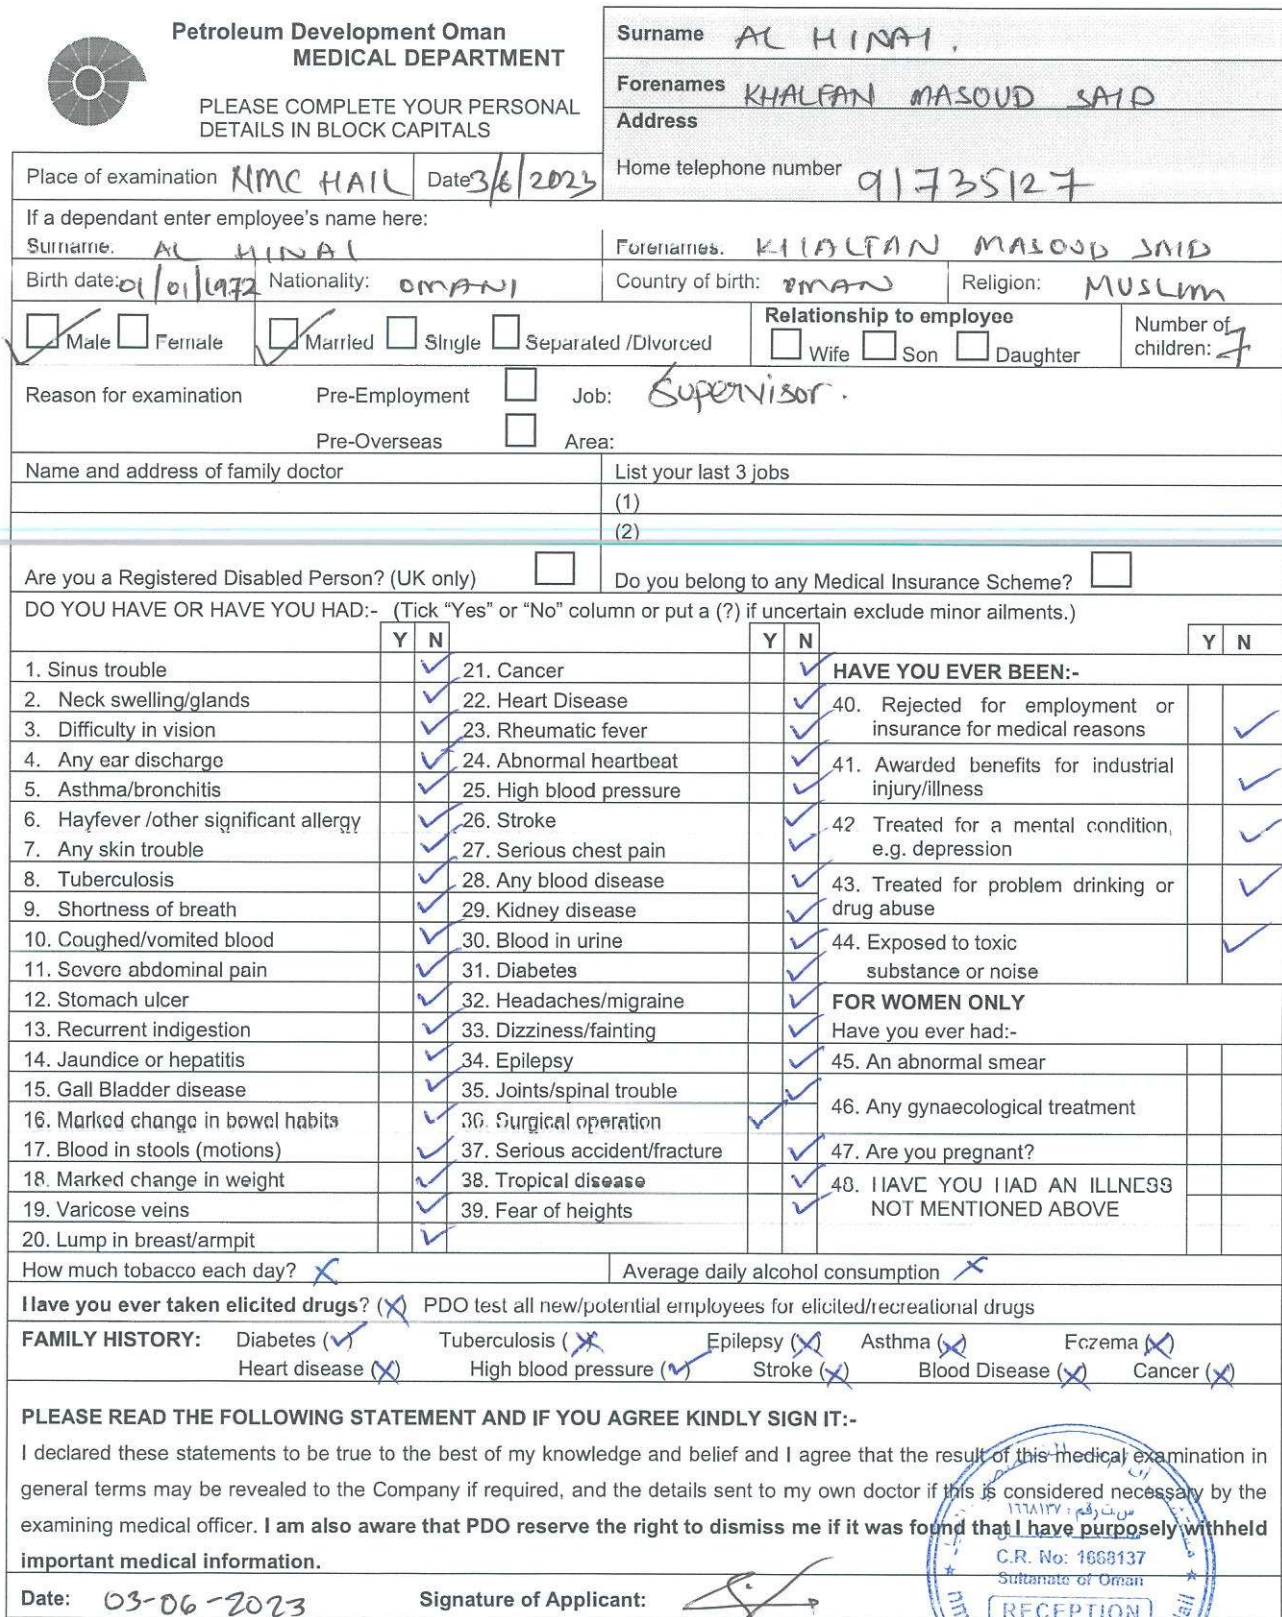 Petroleum Development Oman
MEDICAL DEPARTMENT
PLEASE COMPLETE YOUR PERSONAL
DETAILS IN BLOCK CAPITALS
Surname AL HINAI.
Forenames KHALFAN MASOUD SAID
Address
Home telephone number 91735127
Place of examination NMC HAIL Date 3/6/2023
If a dependant enter employee's name here:
Surname. AL HINAI Forenames. KHALFAN MASOUD SAID
Birth date: 01/01/1972 Nationality: OMANI Country of birth: OMAN Religion: MUSLIM
Male Female Married Single Separated /Divorced
Relationship to employee
Wife Son Daughter
Number of children: 7
Reason for examination Pre-Employment Job: Supervisor.
Pre-Overseas Area:
Name and address of family doctor List your last 3 jobs
(1)
(2)
Are you a Registered Disabled Person? (UK only) Do you belong to any Medical Insurance Scheme?
DO YOU HAVE OR HAVE YOU HAD:- (Tick "Yes" or "No" column or put a (?) if uncertain exclude minor ailments.)
Y N Y N Y N
1. Sinus trouble ✓
2. Neck swelling/glands ✓
3. Difficulty in vision ✓
4. Any ear discharge ✓
5. Asthma/bronchitis ✓
6. Hayfever /other significant allergy ✓
7. Any skin trouble ✓
8. Tuberculosis ✓
9. Shortness of breath ✓
10. Coughed/vomited blood ✓
11. Severe abdominal pain ✓
12. Stomach ulcer ✓
13. Recurrent indigestion ✓
14. Jaundice or hepatitis ✓
15. Gall Bladder disease ✓
16. Marked change in bowel habits ✓
17. Blood in stools (motions) ✓
18. Marked change in weight ✓
19. Varicose veins ✓
20. Lump in breast/armpit ✓
21. Cancer ✓
22. Heart Disease ✓
23. Rheumatic fever ✓
24. Abnormal heartbeat ✓
25. High blood pressure ✓
26. Stroke ✓
27. Serious chest pain ✓
28. Any blood disease ✓
29. Kidney disease ✓
30. Blood in urine ✓
31. Diabetes ✓
32. Headaches/migraine ✓
33. Dizziness/fainting ✓
34. Epilepsy ✓
35. Joints/spinal trouble ✓
36. Surgical operation ✓
37. Serious accident/fracture ✓
38. Tropical disease ✓
39. Fear of heights ✓
HAVE YOU EVER BEEN:-
40. Rejected for employment or
insurance for medical reasons ✓
41. Awarded benefits for industrial
injury/illness ✓
42 Treated for a mental condition,
e.g. depression ✓
43. Treated for problem drinking or
drug abuse ✓
44. Exposed to toxic
substance or noise ✓
FOR WOMEN ONLY
Have you ever had:-
45. An abnormal smear
46. Any gynaecological treatment
47. Are you pregnant?
48. HAVE YOU HAD AN ILLNESS
NOT MENTIONED ABOVE
How much tobacco each day? X Average daily alcohol consumption X
Have you ever taken elicited drugs? (X) PDO test all new/potential employees for elicited/recreational drugs
FAMILY HISTORY: Diabetes (✓) Tuberculosis (X) Epilepsy (X) Asthma (X) Eczema (X)
Heart disease (X) High blood pressure (✓) Stroke (X) Blood Disease (X) Cancer (X)
PLEASE READ THE FOLLOWING STATEMENT AND IF YOU AGREE KINDLY SIGN IT:-
I declared these statements to be true to the best of my knowledge and belief and I agree that the result of this medical examination in
general terms may be revealed to the Company if required, and the details sent to my own doctor if this is considered necessary by the
examining medical officer. I am also aware that PDO reserve the right to dismiss me if it was found that I have purposely withheld
important medical information.
Date: 03-06-2023 Signature of Applicant:
س.ت رقم : ١٦٦٨١٣٧
C.R. No: 1668137
Sultanate of Oman
RECEPTION